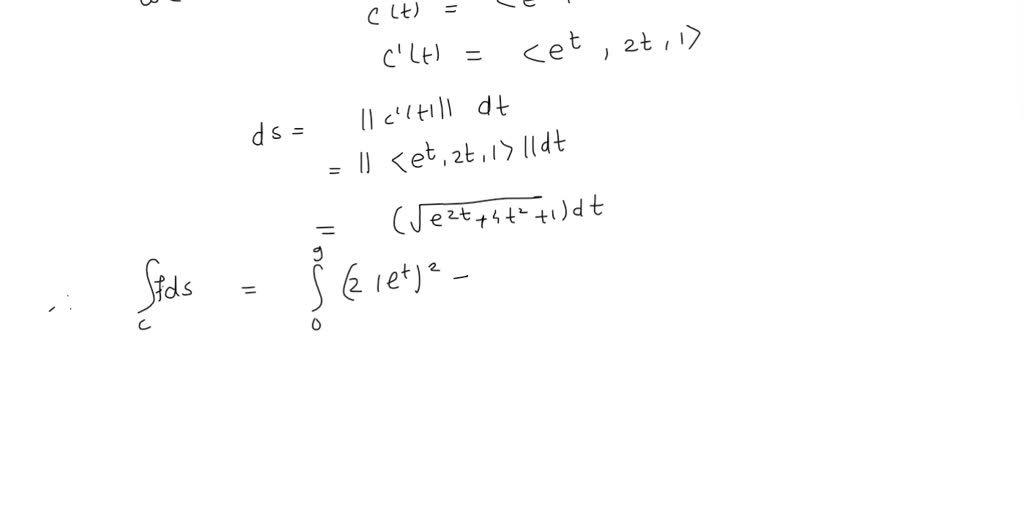 c(t) = <e
c'(t) = <e^t, 2t, 1>
ds = ||c'(t)|| dt
= || <e^t, 2t, 1> || dt
= (√e^2t + 4t² + 1) dt
∴ ∫_C f ds = ∫_0^9 (2(e^t)² −